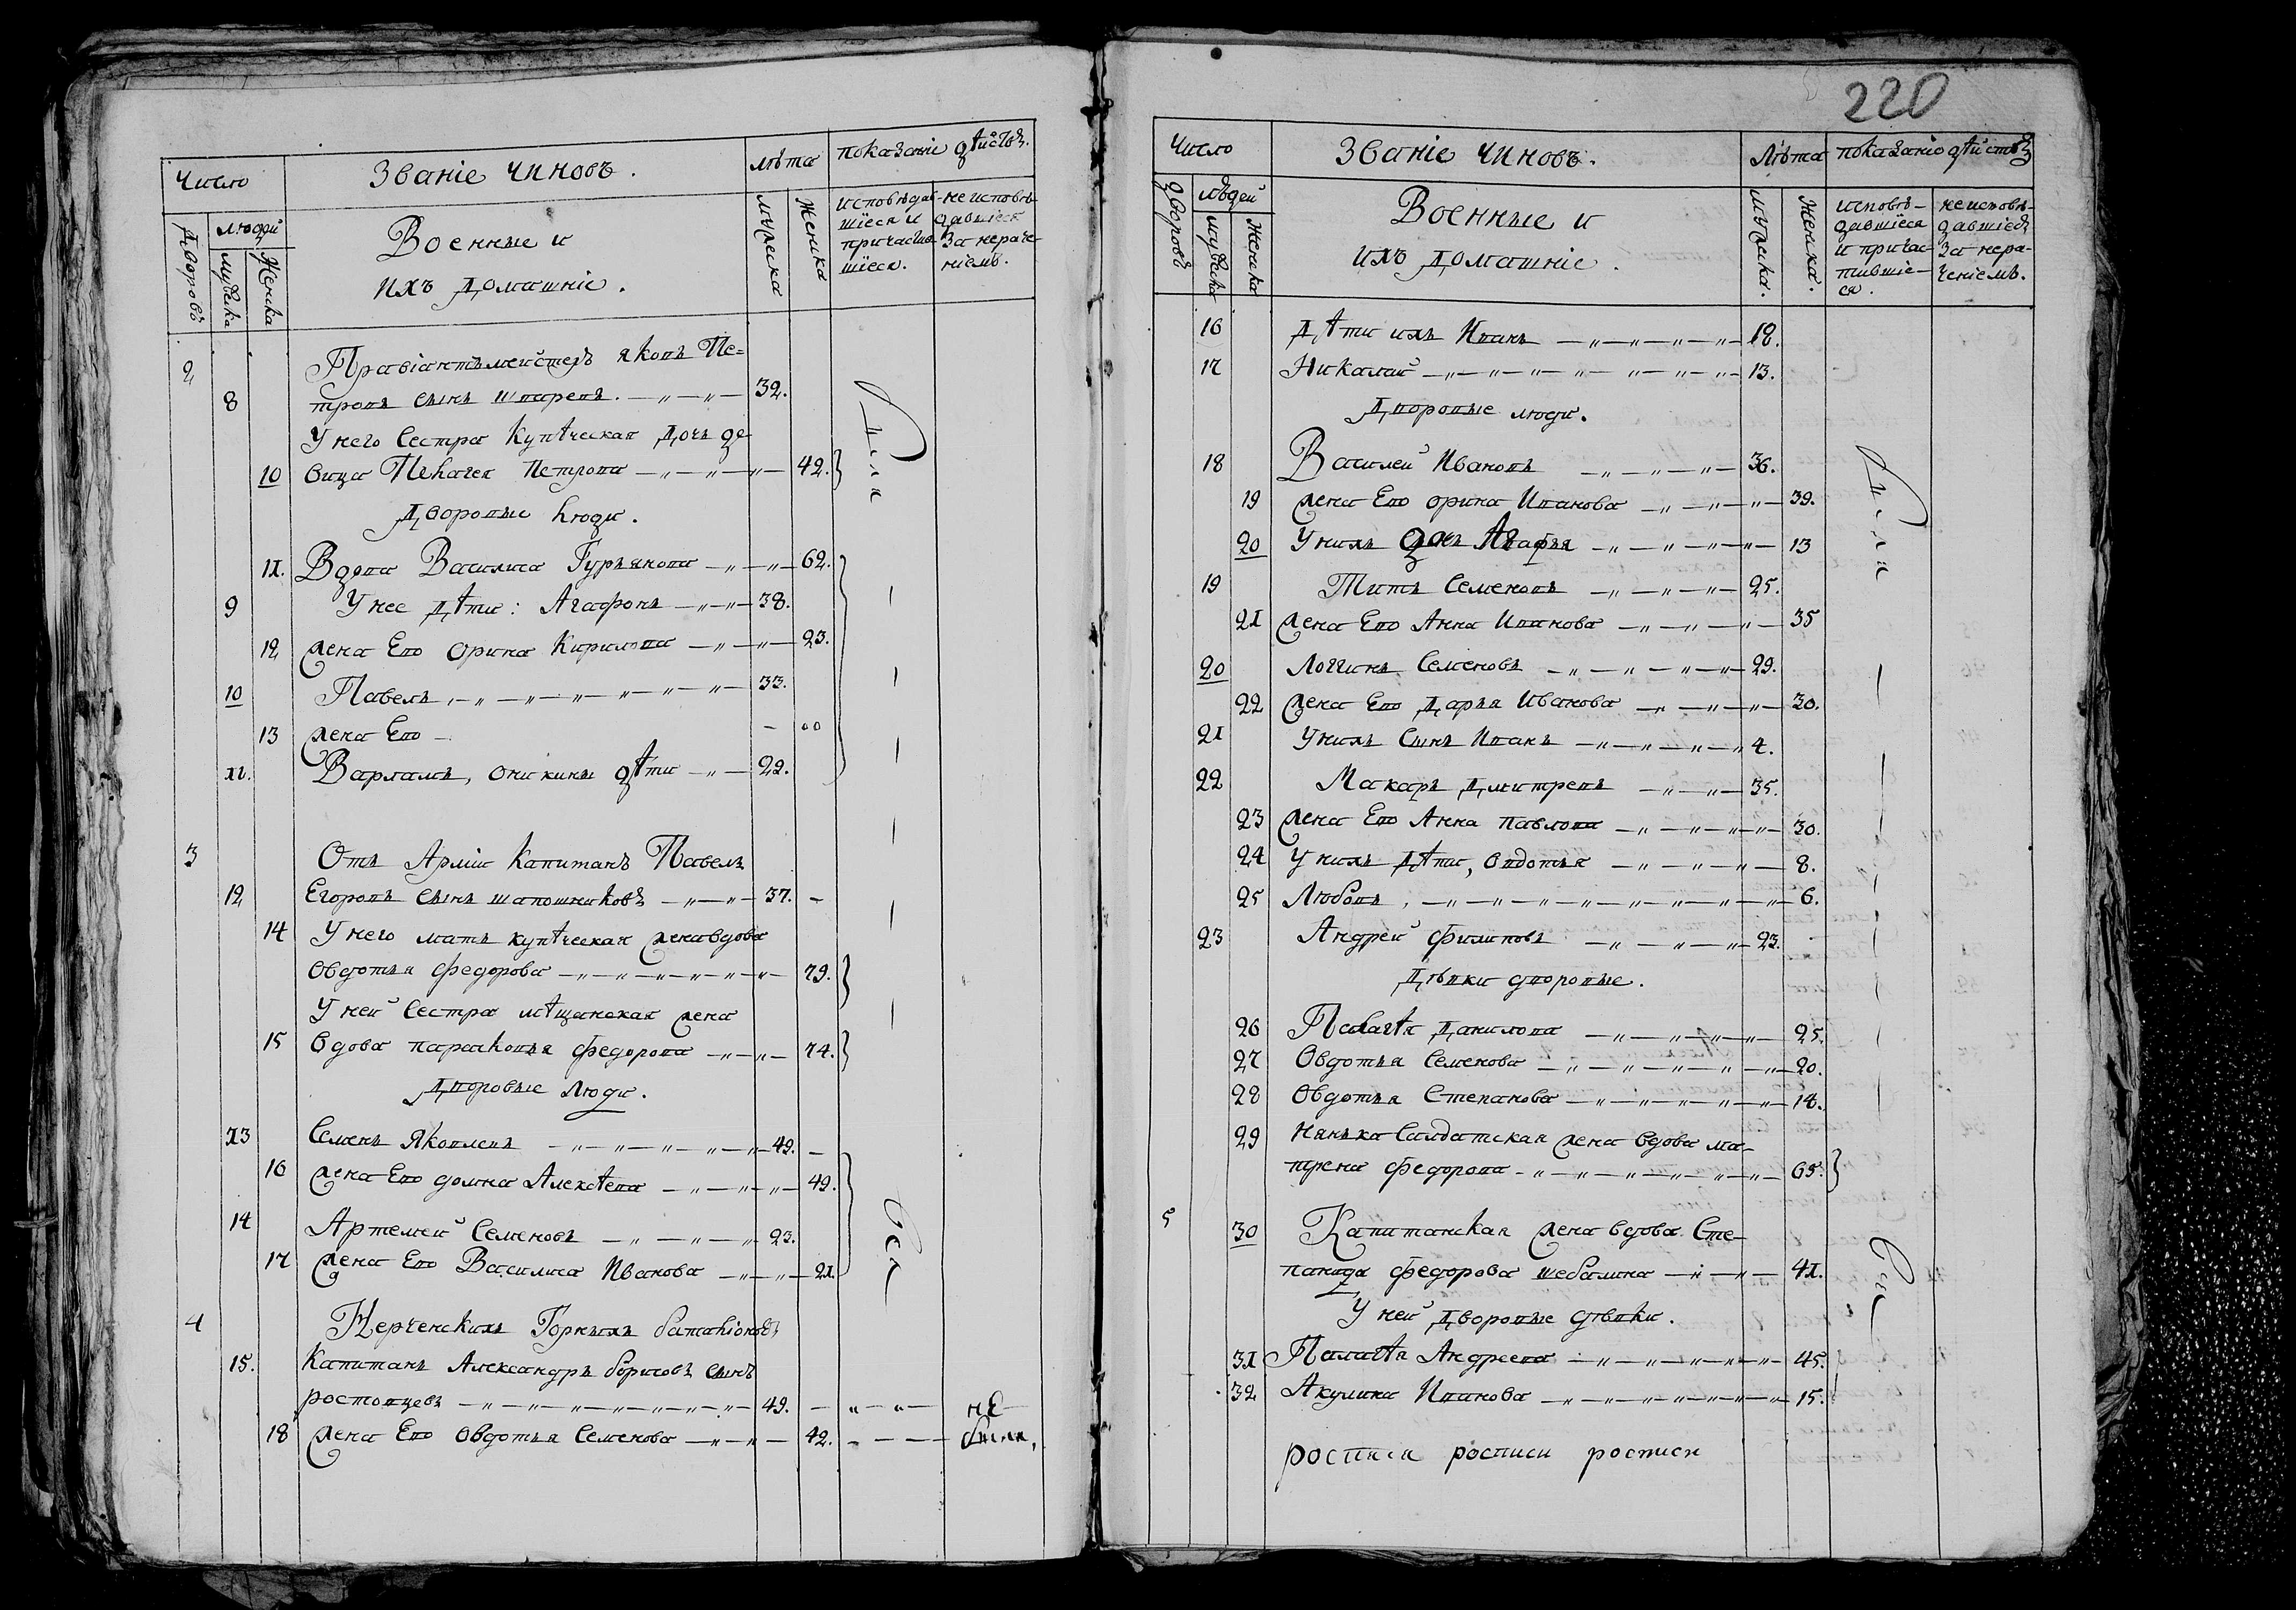 Число Званіе чиновъ. лѣта показаніе дѣйствъ.
Дворовъ людей мужска женска
Военные и ихъ домашніе.
мужска женска
исповѣдав-шіеся и причастив-шіеся.
не исповѣ-давшіеся за нераче-ніемъ.
2 Правіантъмейстеръ яковъ Пе=
8 тровъ сынъ — „ — „ — 32.
У него Сестра Купѣческая Дочь де
10 вица Пелагея Петрова — „ — „ — „ — 42. были
Дворовые люди.
11. Вдова Василиса Гурьянова — „ — „ — 62.
9 У нее дѣти: Агафонъ — „ — „ — 38.
12 жена Его орина Кирилова — „ — „ — 23.
10 Павелъ, — „ — „ — „ — „ — „ — „ — 33.
13 жена Его —
11. Варламъ, они кины дѣти — „ — 22.
3 Отъ Арміи Капитанъ Павелъ
12 Егоровъ сынъ шапошниковъ — „ — „ — 37. –
14 У него мать купѣческая жена вдова
Овдотья федорова — „ — „ — „ — „ — „ — 79.
У ней Сестра мѣщанская жена
15 вдова парасковья федорова — „ — „ — 74.
Дворовые люди.
13 Семенъ Яковлевъ — „ — „ — „ — „ — „ — 49. –
16 жена Его домна Алексѣева — „ — „ — „ — 49.
14 Артемей Семеновъ — „ — „ — „ — 23.
17 жена Его Василиса Иванова — „ — „ — 21. вся
4 Нерченскихъ Горныхъ баталіоновъ
15. Капитанъ Александръ борисовъ сынъ
ростовцевъ — „ — „ — „ — „ — „ — „ — „ — 49. – „ — „ — не
18 жена Его Овдотья Семенова — „ — „ — 42. – — — были,
220
Число Званіе чиновъ. Лѣта показаніе дѣйствъ
дворовъ людей мужска женска
Военные и ихъ домашніе.
мужска. женска.
исповѣ-давшіеся и причас-тившіе-ся.
не исповѣ-давшіеся за нера-ченіемъ.
16 Дѣти ихъ Иванъ — „ — „ — „ — „ — 18.
17 Николай — „ — „ — „ — „ — „ — „ — „ — 13.
Дворовые люди.
18 Василей Ивановъ — „ — „ — „ — 36. были
19 жена Его орина Иванова — „ — „ — „ — 39.
20 У нихъ дочь Агафья — „ — „ — „ — „ — 13
19 Титъ Семеновъ — „ — „ — „ — 25.
21 жена Его Анна Иванова — „ — „ — „ — 35
20 Логгинъ Семеновъ — „ — „ — „ — „ — 29.
22 жена Его Дарья Иванова — „ — „ — „ — 30.
21 У нихъ Сынъ Иванъ — „ — „ — „ — „ 4.
22 Макаръ Дмитревъ — „ — „ — 35.
23 жена Его Анна павлова — „ — „ — „ — „ — 30.
24 У нихъ дѣти, Овдотья — „ — „ — „ — 8.
25 Любовь, — „ — „ — „ — „ — „ — „ — „ — 6.
23 Андрей филиповъ — „ — „ — „ — 23.
Дѣвки дворовые.
26 Палагѣя Данилова — „ — „ — „ — „ — 25.
27 Овдотья Семенова — „ — „ — „ — „ — „ — 20.
28 Овдотья Степанова — „ — „ — „ — „ — „ — 14.
29 Нянька Салдатская жена вдова ма-
трена федорова - „ — „ — „ — „ — „ — „ — 65.
5 30 Капитанская жена вдова Сте-
панида федорова шебалина — „ — „ — 41. были
У ней дворовые дѣвки.
31 Палагѣя Андреева — „ — „ — „ — „ — „ — 45.
32 Акулина Иванова — „ — „ — „ — „ — „ — „ — 15.
росписи росписи